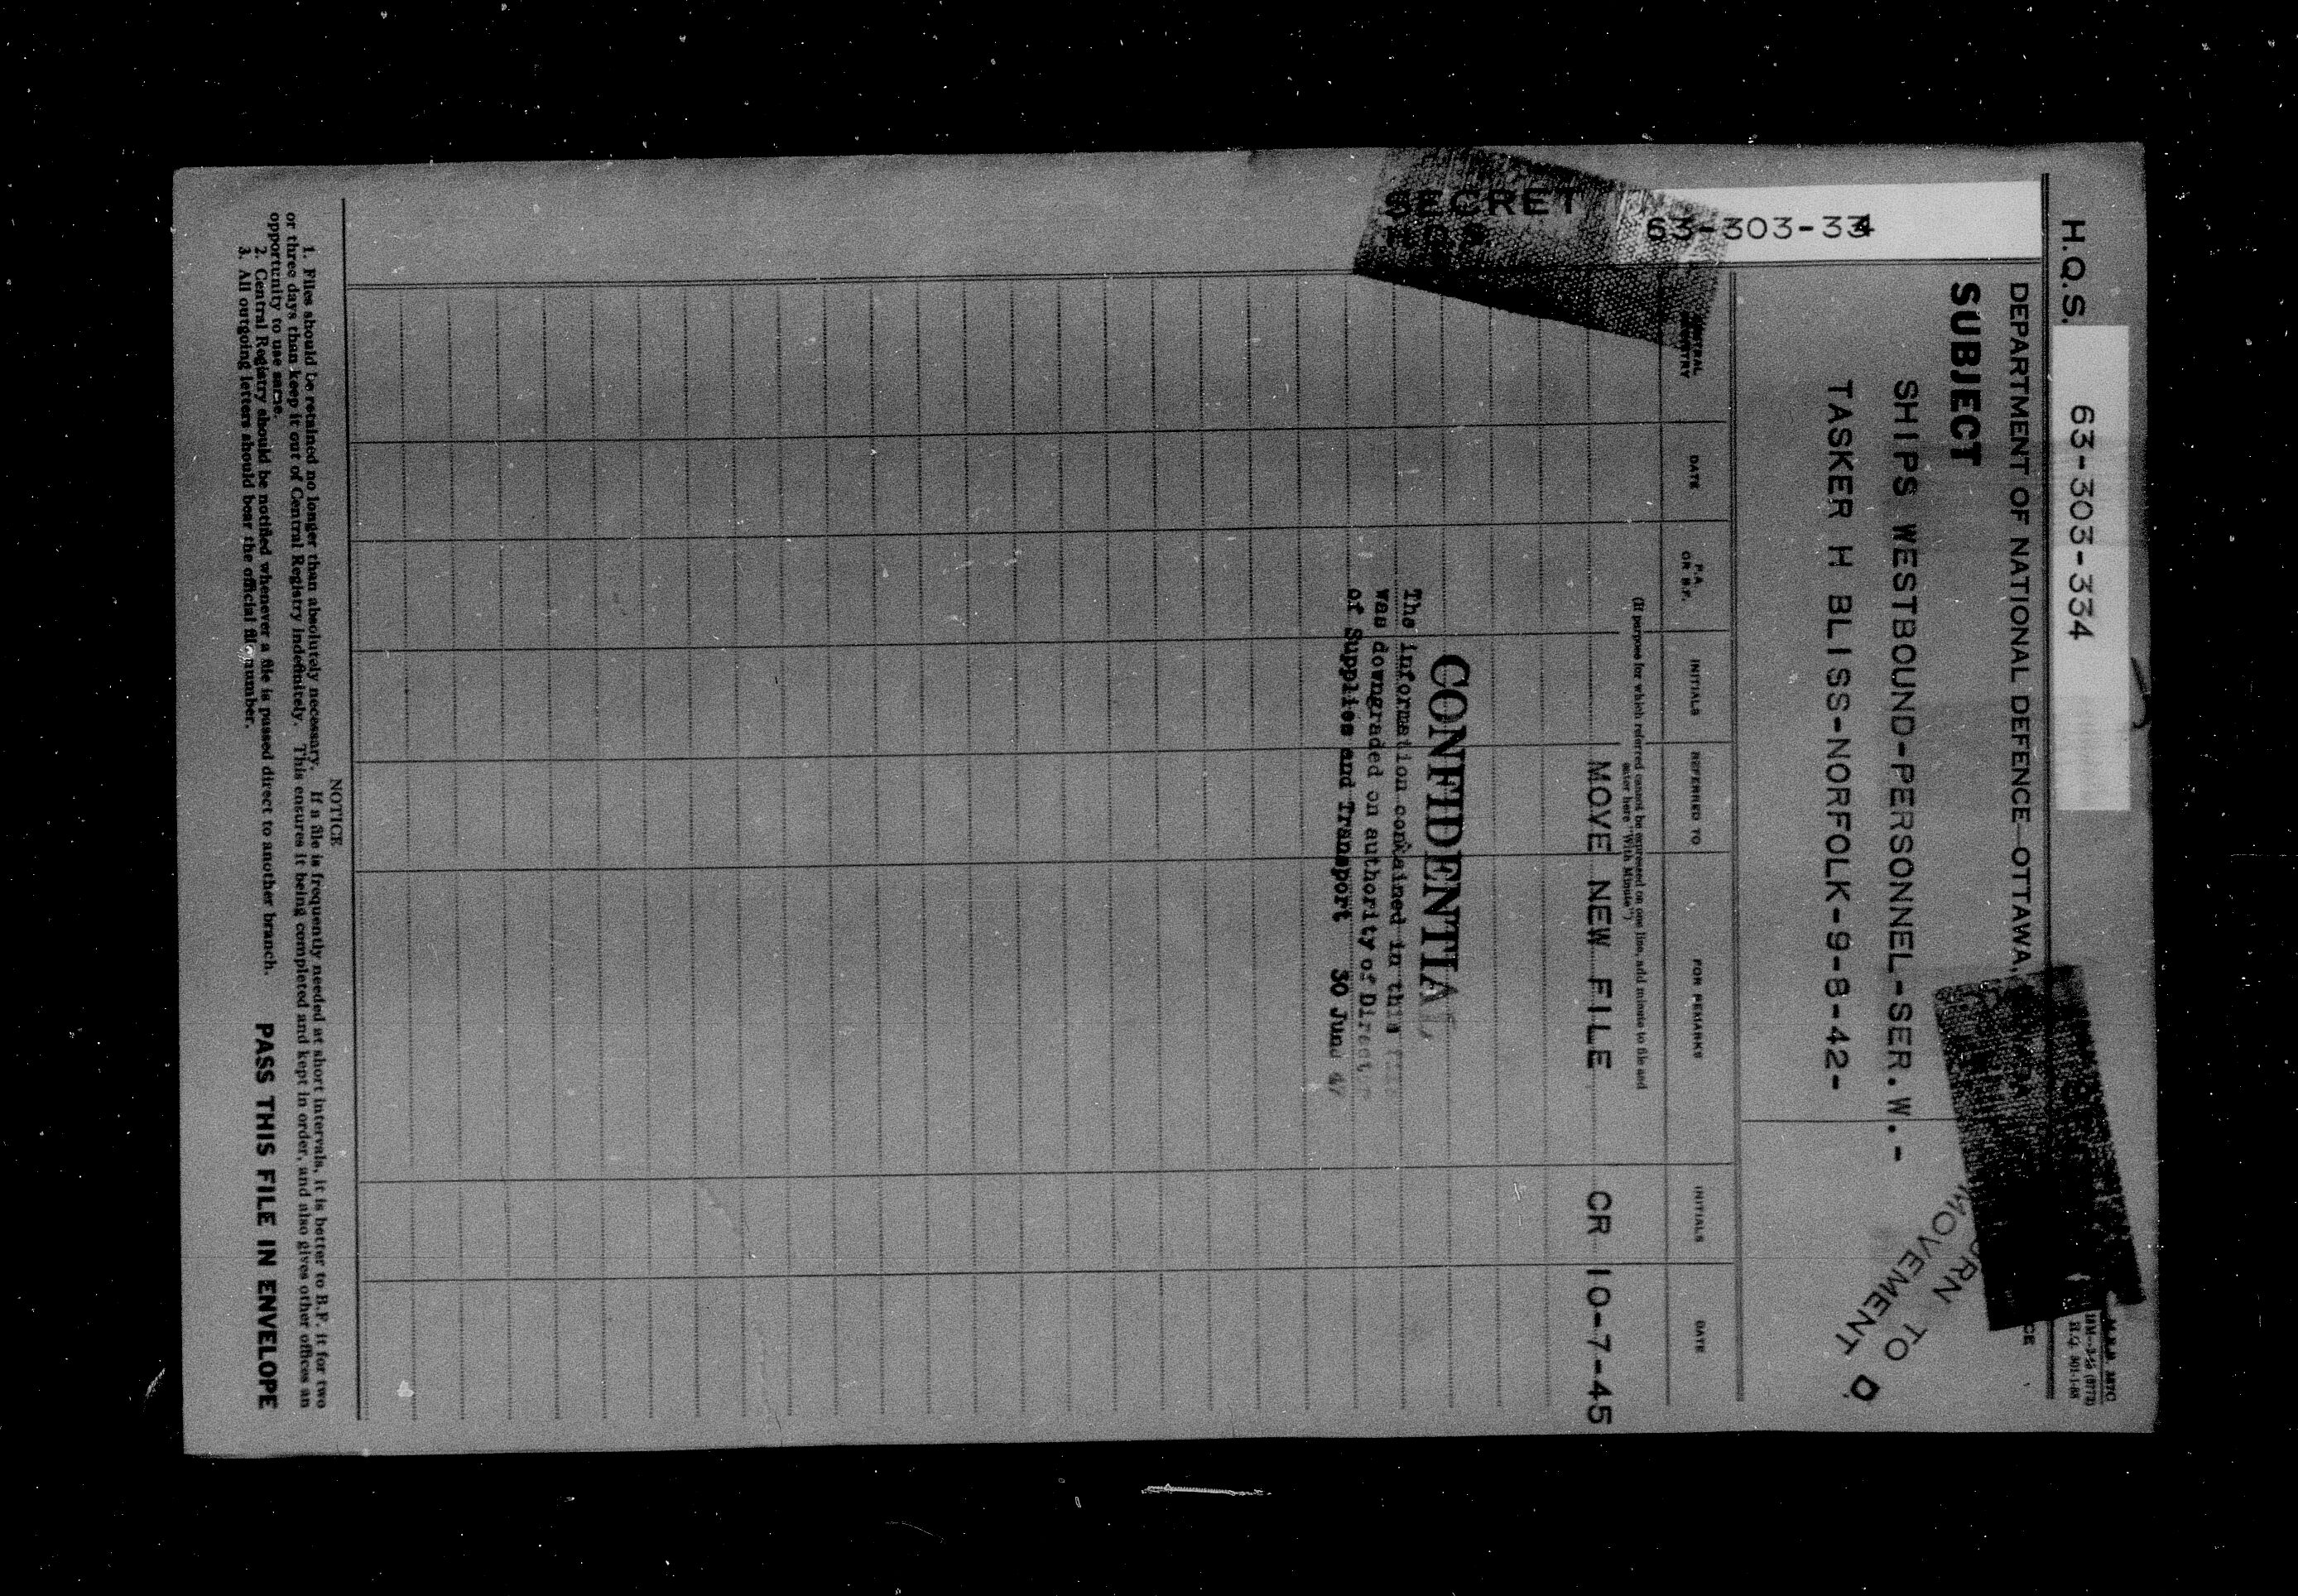 H.Q.S. 63-303-334
DEPARTMENT OF NATIONAL DEFENCE—OTTAWA,
SUBJECT
SHIPS WESTBOUND-PERSONNEL-SER.W.-
TASKER H BLISS-NORFOLK-9-8-42-
TO
MOVEMENT
63-303-334
SECRET
DATE
P.A. OR B.F.
INITIALS
REFERRED TO
FOR REMARKS
INITIALS
DATE
(If purpose for which referred cannot be expressed on one line, add minute to file and
enter here "With Minute")
MOVE NEW FILE CR 10-7-45
CONFIDENTIAL
The information contained in this
was downgraded on authority of Direct
of Supplies and Transport 30 June
NOTICE
1. Files should be retained no longer than absolutely necessary. If a file is frequently needed at short intervals, it is better to B.F. it for two
or three days than keep it out of Central Registry indefinitely. This ensures it being completed and kept in order, and also gives other offices an
opportunity to use same.
2. Central Registry should be notified whenever a file is passed direct to another branch.
3. All outgoing letters should bear the official file number.
PASS THIS FILE IN ENVELOPE